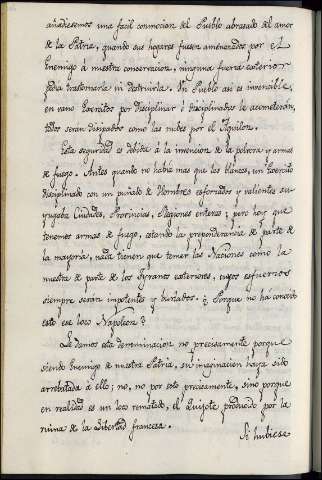 añadiesemos una facil conmocion del Pueblo abrasado del amor
de la Patria, quando sus hogares fuesen amenazados por el
Enemigo á nuestra conservacion, ninguna fuerza exterior
podrá trastornarla ni destruirla. Un Pueblo asi es invencible,
en vano Exercitos por disciplinar ó disciplinados le acometerán,
todos seran disipados como las nubes por el Aquilon.
Esta seguridad es debida á la invencion de la polvora y armas
de fuego. Antes quando no habia mas que las blancas, un Exercito
disciplinado con un puñado de Hombres esforzados y valientes sub
yugaba Ciudades, Provincias, Naciones enteras; pero hoy que
tenemos armas de fuego, estando la preponderancia de parte de
la mayoria, nada tienen que temer las Naciones como la
nuestra de parte de los tyranos exteriores, cuyos esfuerzos
siempre seran impotentes y burlados. ¿Porque no há conocido
esto ese loco Napoleon?
Le damos esta denominacion no precisamente porque
siendo Enemigo de nuestra Patria, su imaginacion haya sido
arrebatada á ello; no, no por esto precisamente, sino porque
en realidad es un loco rematado, el Quijote producido por la
ruina de la Libertad francesa.
Si hubiese